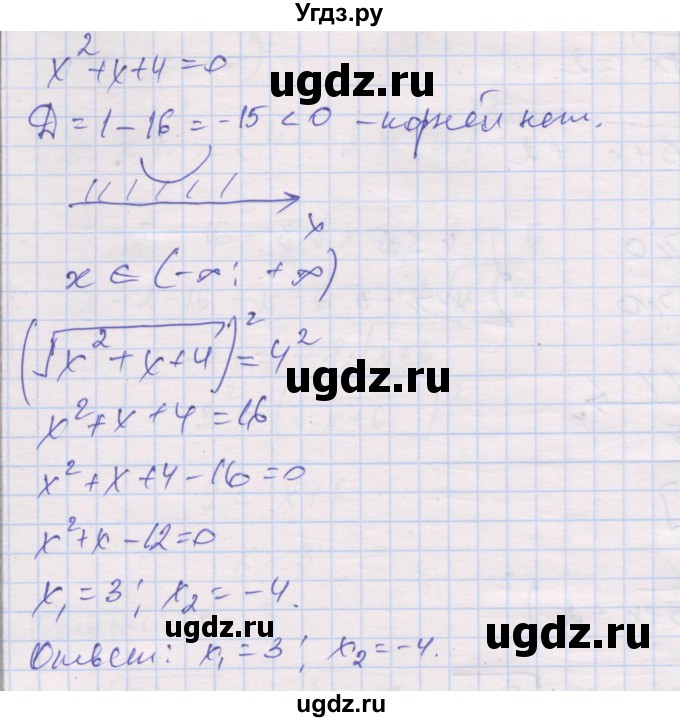 Угдз.ру
x² + x + 4 = 0
ugdz.ru
Д = 1 - 16 = -15 < 0 - корней нет.
x
x ∈ (-∞; +∞)
(√x² + x + 4)² = 4²
ugdz.ru
x² + x + 4 = 16
x² + x + 4 - 16 = 0
x² + x - 12 = 0
x₁ = 3; x₂ = -4.
ugdz.ru
Ответ: x₁ = 3; x₂ = -4.
ugdz.ru
ugdz.ru